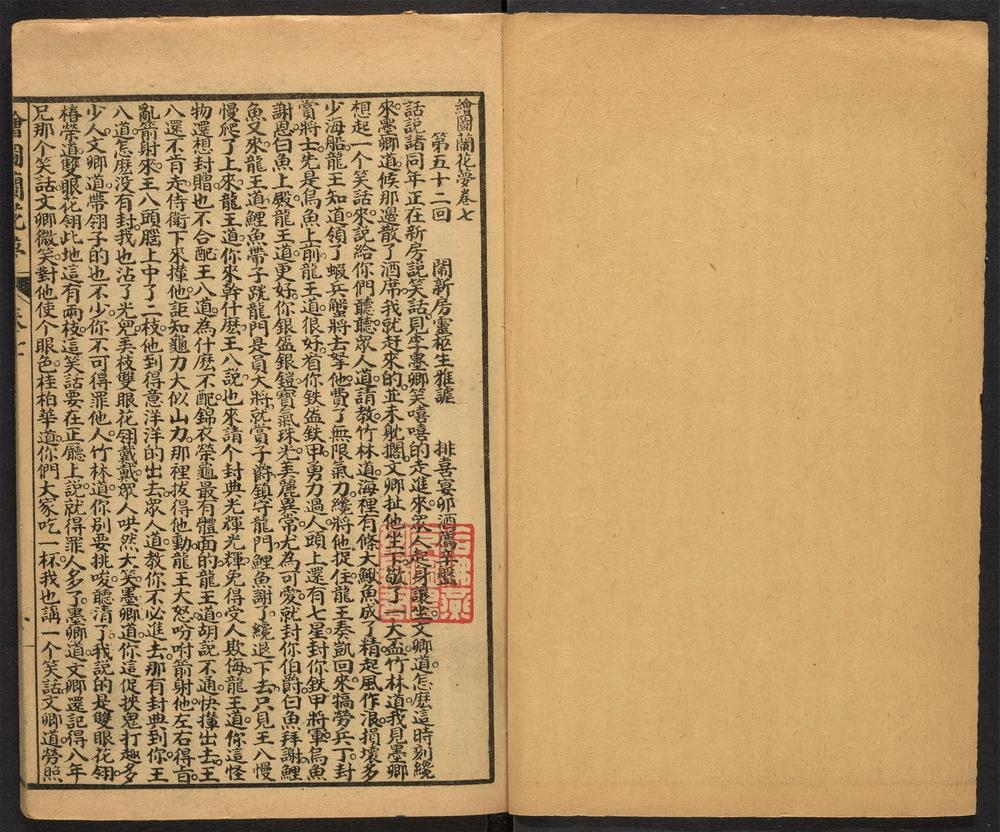 繪圖蘭花夢卷七
第五十二回 鬧新房靈柩生雅謔 排喜宴卯酒薦辛盤
話說諸同年正在新房說笑話見李墨卿笑嘻嘻的走進來眾人起身讓坐文卿道怎麽這時刻纔
來墨卿道候那邊散了酒席我就赶來的並未躭擱文卿扯他坐下敬了一大盃竹林道我見墨卿
想起一个笑話來說給你們聽聽眾人道請教竹林道海裡有條大鰍魚成了精起風作浪損壞多
少海船龍王知道領了蝦兵蟹將去拏他費了無限氣力纔將他捉住龍王奏凱回來犒勞兵丁封
賞將士先是烏魚上前龍王道很好看你鉄盔鉄甲勇力過人頭上還有七星封你鉄甲將軍烏魚
謝恩白魚上殿龍王道更好你銀盔銀鎧寶氣珠光美麗異常尤為可愛就封你伯爵白魚拜謝鯉
魚又來龍王道鯉魚帶子跳龍門是員大將就賞子爵鎮守龍門鯉魚謝了纔退下去只見王八慢
慢爬了上來龍王道你來幹什麽王八說也來請个封典光輝光輝免得受人欺侮龍王道你這怪
物還想封贈也不合配王八道為什麽不配錦衣榮龜最有體面的龍王道胡說不通快攆出去王
八還不肯走侍衛下來攆他詎知龜力大似山力那裡拔得他動龍王大怒吩咐箭射他左右得旨
亂箭射來王八頭腦上中了二枝他到得意洋洋的出去眾人道教你不必進去那有封典到你王
八道怎麽没有封我也沾了光兒美枝雙眼花翎戴戴眾人哄然大笑墨卿道你這促挾鬼打趣多
少人文卿道帶翎子的也不少你不可得罪他人竹林道你别要挑唆聽清了我說的是雙眼花翎
椿榮道雙眼花翎此地這有兩枝這笑話要在正廳上說就得罪人多了墨卿道文卿還記得八年
兄那个笑話文卿微笑對他使个眼色桂柏華道你們大家吃一杯我也講一个笑話文卿道勞照
繪圖蘭花夢 卷七